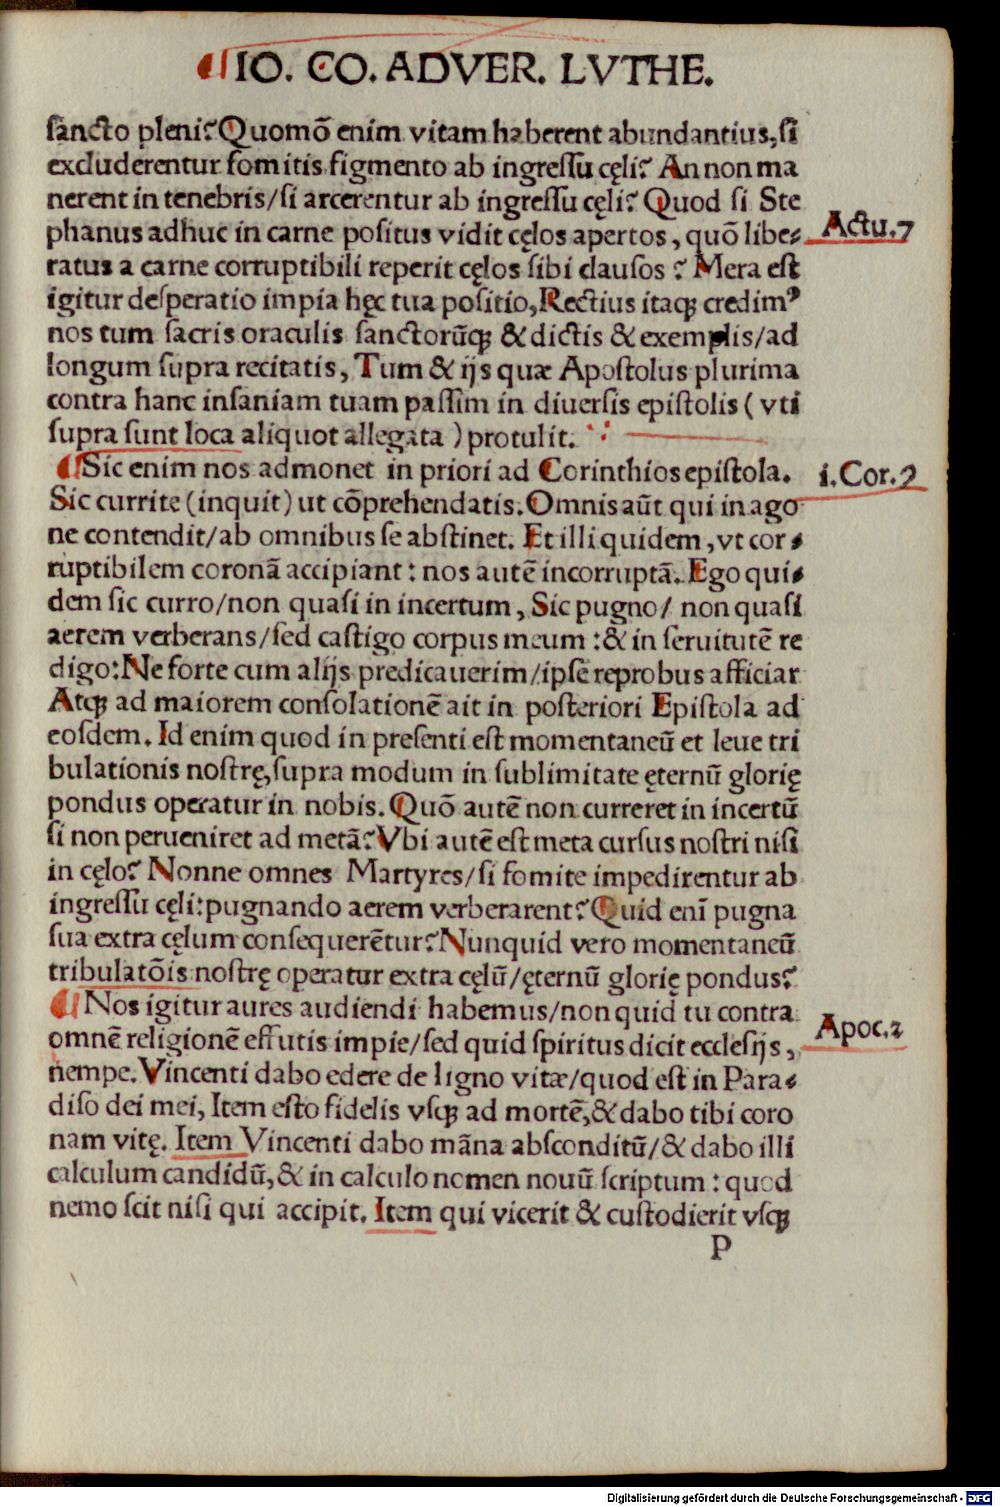 IO. CO. ADVER. LVTHE.
sancto pleni? Quomō enim vitam haberent abundantius, si
excluderentur fomitis figmento ab ingressu cęli? An non ma
nerent in tenebris/si arcerentur ab ingressu cęli? Quod si Ste
phanus adhuc in carne positus vidit cęlos apertos, quō libe-
Actu.7
ratus a carne corruptibili reperit cęlos sibi clausos? Mera est
igitur desperatio impia hęc tua positio, Rectius itaqꝫ credimꝰ
nos tum sacris oraculis sanctorūqꝫ & dictis & exemplis/ad
longum supra recitatis, Tum & ijs quæ Apostolus plurima
contra hanc insaniam tuam passim in diuersis epistolis (vti
supra sunt loca aliquot allegata) protulit.
¶Sic enim nos admonet in priori ad Corinthios epistola.
i.Cor.9
Sic currite (inquit) ut cōprehendatis. Omnis aūt qui in ago
ne contendit/ab omnibus se abstinet. Et illi quidem, vt cor-
ruptibilem coronā accipiant: nos autē incorruptā. Ego qui-
dem sic curro/non quasi in incertum, Sic pugno/ non quasi
aerem verberans/sed castigo corpus meum: & in seruitutē re
digo: Ne forte cum alijs predicauerim/ipse reprobus afficiar
Atqꝫ ad maiorem consolationē ait in posteriori Epistola ad
eosdem. Id enim quod in presenti est momentaneū et leue tri
bulationis nostrę, supra modum in sublimitate ęternū glorię
pondus operatur in nobis. Quō autē non curreret in incertū
si non perueniret ad metā? Vbi autē est meta cursus nostri nisi
in cęlo? Nonne omnes Martyres/si fomite impedirentur ab
ingressu cęli: pugnando aerem verberarent? Quid enī pugna
sua extra cęlum consequerētur? Nunquid vero momentaneū
tribulatōis nostrę operatur extra cęlū/ęternū glorię pondus?
¶Nos igitur aures audiendi habemus/non quid tu contra
Apoc.2
omnē religionē effutis impie/sed quid spiritus dicit ecclesijs,
nempe. Vincenti dabo edere de ligno vitæ/quod est in Para-
diso dei mei, Item esto fidelis vsqꝫ ad mortē, & dabo tibi coro
nam vitę. Item Vincenti dabo māna absconditū/& dabo illi
calculum candidū, & in calculo nomen nouū scriptum: quod
nemo scit nisi qui accipit. Item qui vicerit & custodierit vsqꝫ
P
Digitalisierung gefördert durch die Deutsche Forschungsgemeinschaft - DFG